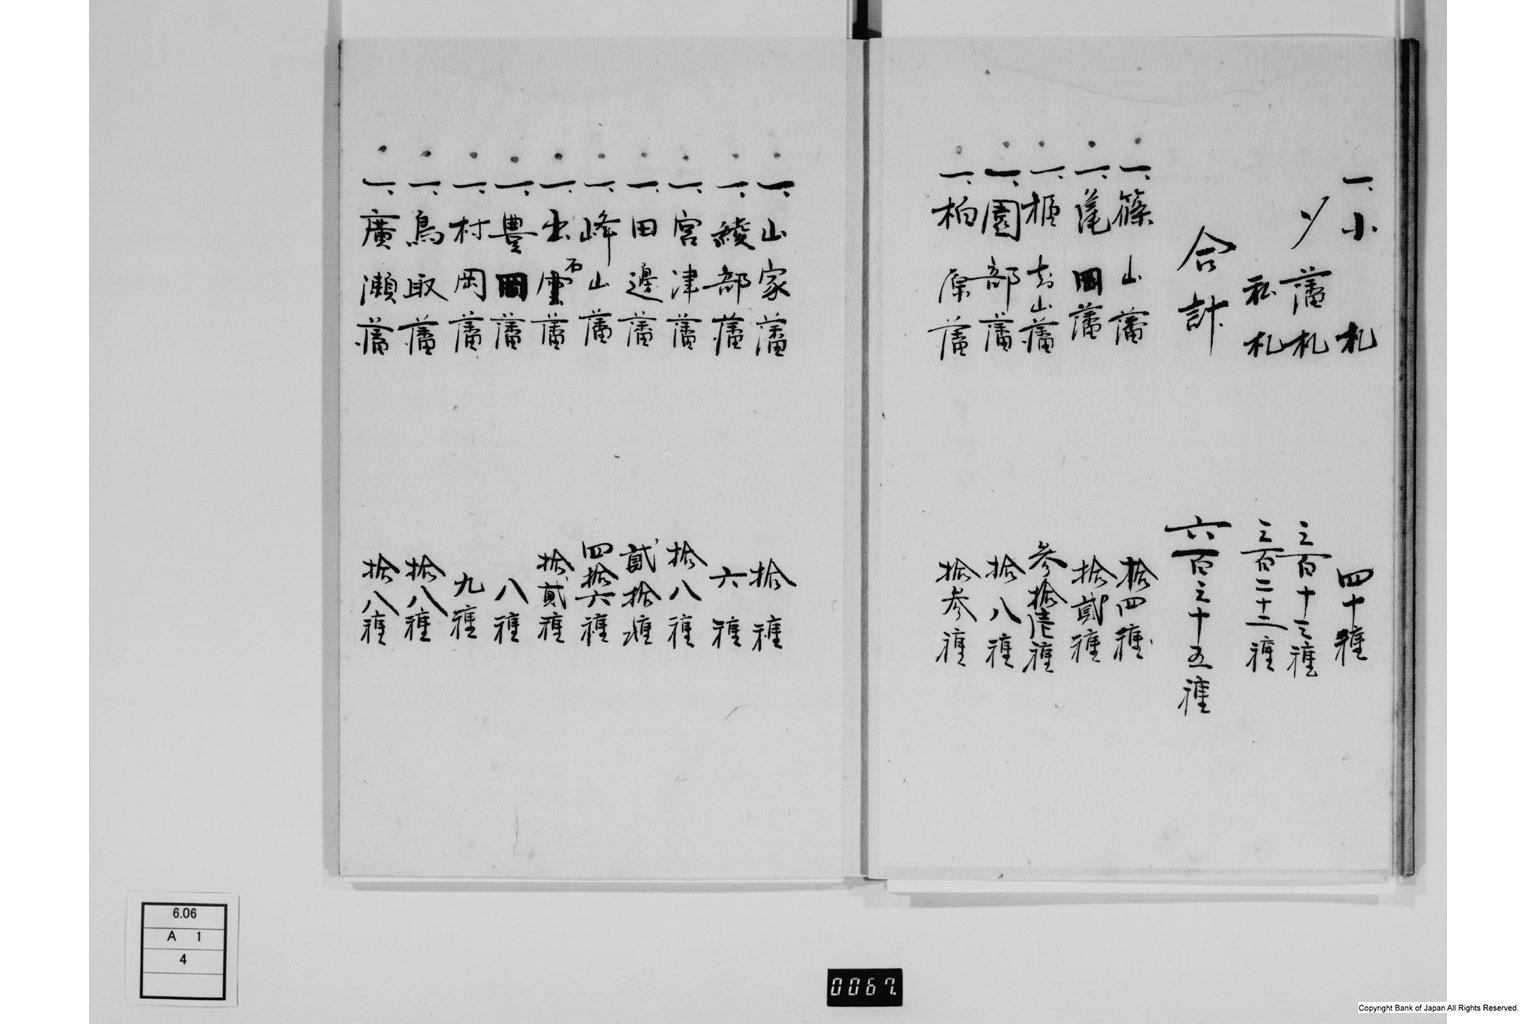 一、小札 四十種
〆藩札 三百十三種
私札 三百二十二種
合計 六百三十五種
一、篠山藩 拾四種
一、亀岡藩 拾貳種
一、福知山藩 参拾壱種
一、園部藩 拾八種
一、柏原藩 拾参種
一、山家藩 拾種
一、綾部藩 六種
一、宮津藩 拾八種
一、田邊藩 貳拾種
一、峰山藩 四拾六種
一、出石藩 拾貳種
一、豊岡藩 八種
一、村岡藩 九種
一、鳥取藩 拾八種
一、廣瀬藩 拾八種
6.06
A 1
4
0067.
Copyright Bank of Japan All Rights Reserved.